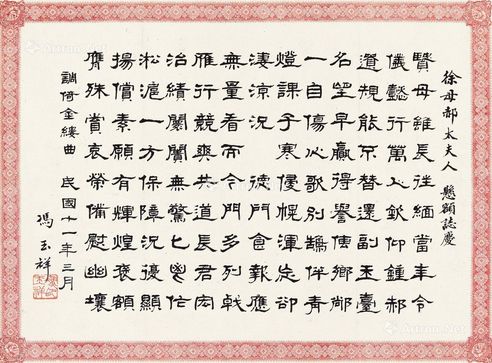 徐母郝太夫人 懸額誌慶
賢母雖長往緬當年令
儀懿行萬人欽仰鍾郝
遺規能不替還副玉臺
名望早贏得譽傳鄉鄰
一自傷心歌別鵠伴青
燈課子寒侵幌渾忘卻
淒涼況 德門食報應
無量看而今門多列戟
雁行競爽共道長君宏
治績闤闠無驚匕鬯作
淞滬一方保障況復顯
揚償素願有輝煌褒額
膺殊賞哀榮備慰幽壤
調倚金縷曲 民國十一年三月
馮玉祥